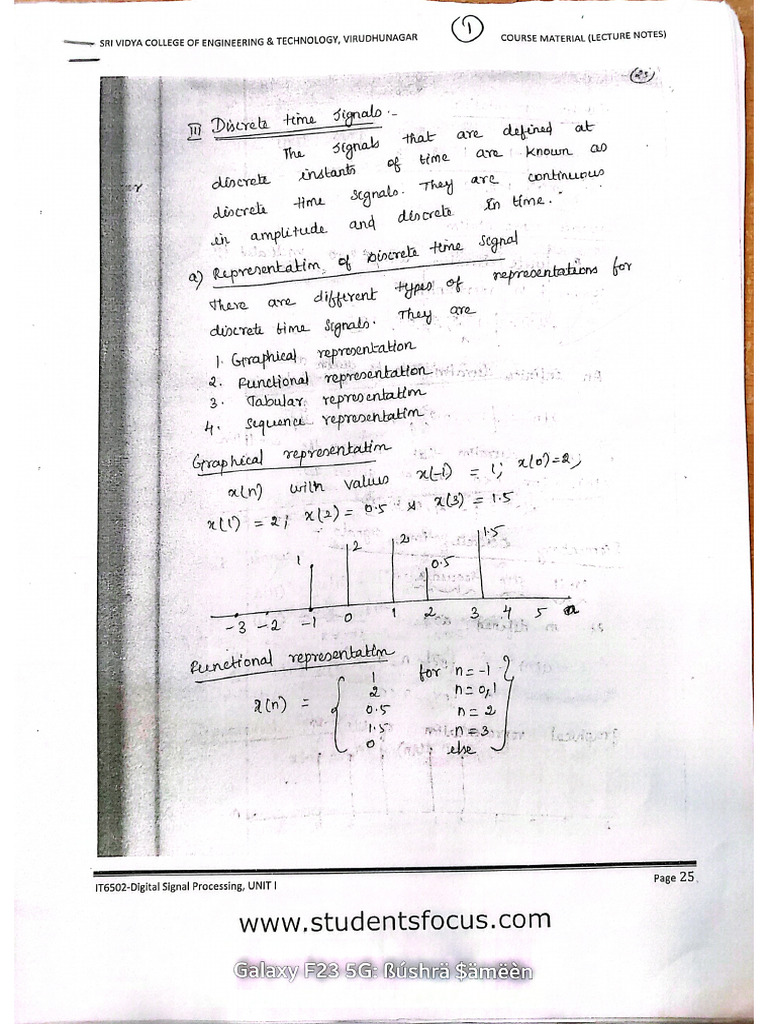 SRI VIDYA COLLEGE OF ENGINEERING & TECHNOLOGY, VIRUDHUNAGAR
1
COURSE MATERIAL (LECTURE NOTES)
23
III Discrete time signals:-
The signals that are defined at
discrete instants of time are known as
discrete time signals. They are continuous
in amplitude and discrete in time.
a) Representation of Discrete time signal
There are different types of representations for
discrete time signals. They are
1. Graphical representation
2. Functional representation
3. Tabular representation
4. Sequence representation
Graphical representation
x(n) with values x(-1) = 1; x(0)=2;
x(1) = 2; x(2) = 0.5 & x(3) = 1.5
1 2 2 0.5 1.5
-3 -2 -1 0 1 2 3 4 5 n
Functional representation
x(n) = { 1 for n=-1 }
2 n=0,1
0.5 n=2
1.5 n=3
0 else
IT6502-Digital Signal Processing, UNIT I
Page 25
www.studentsfocus.com
Galaxy F23 5G: ßúshrä $ämëèn